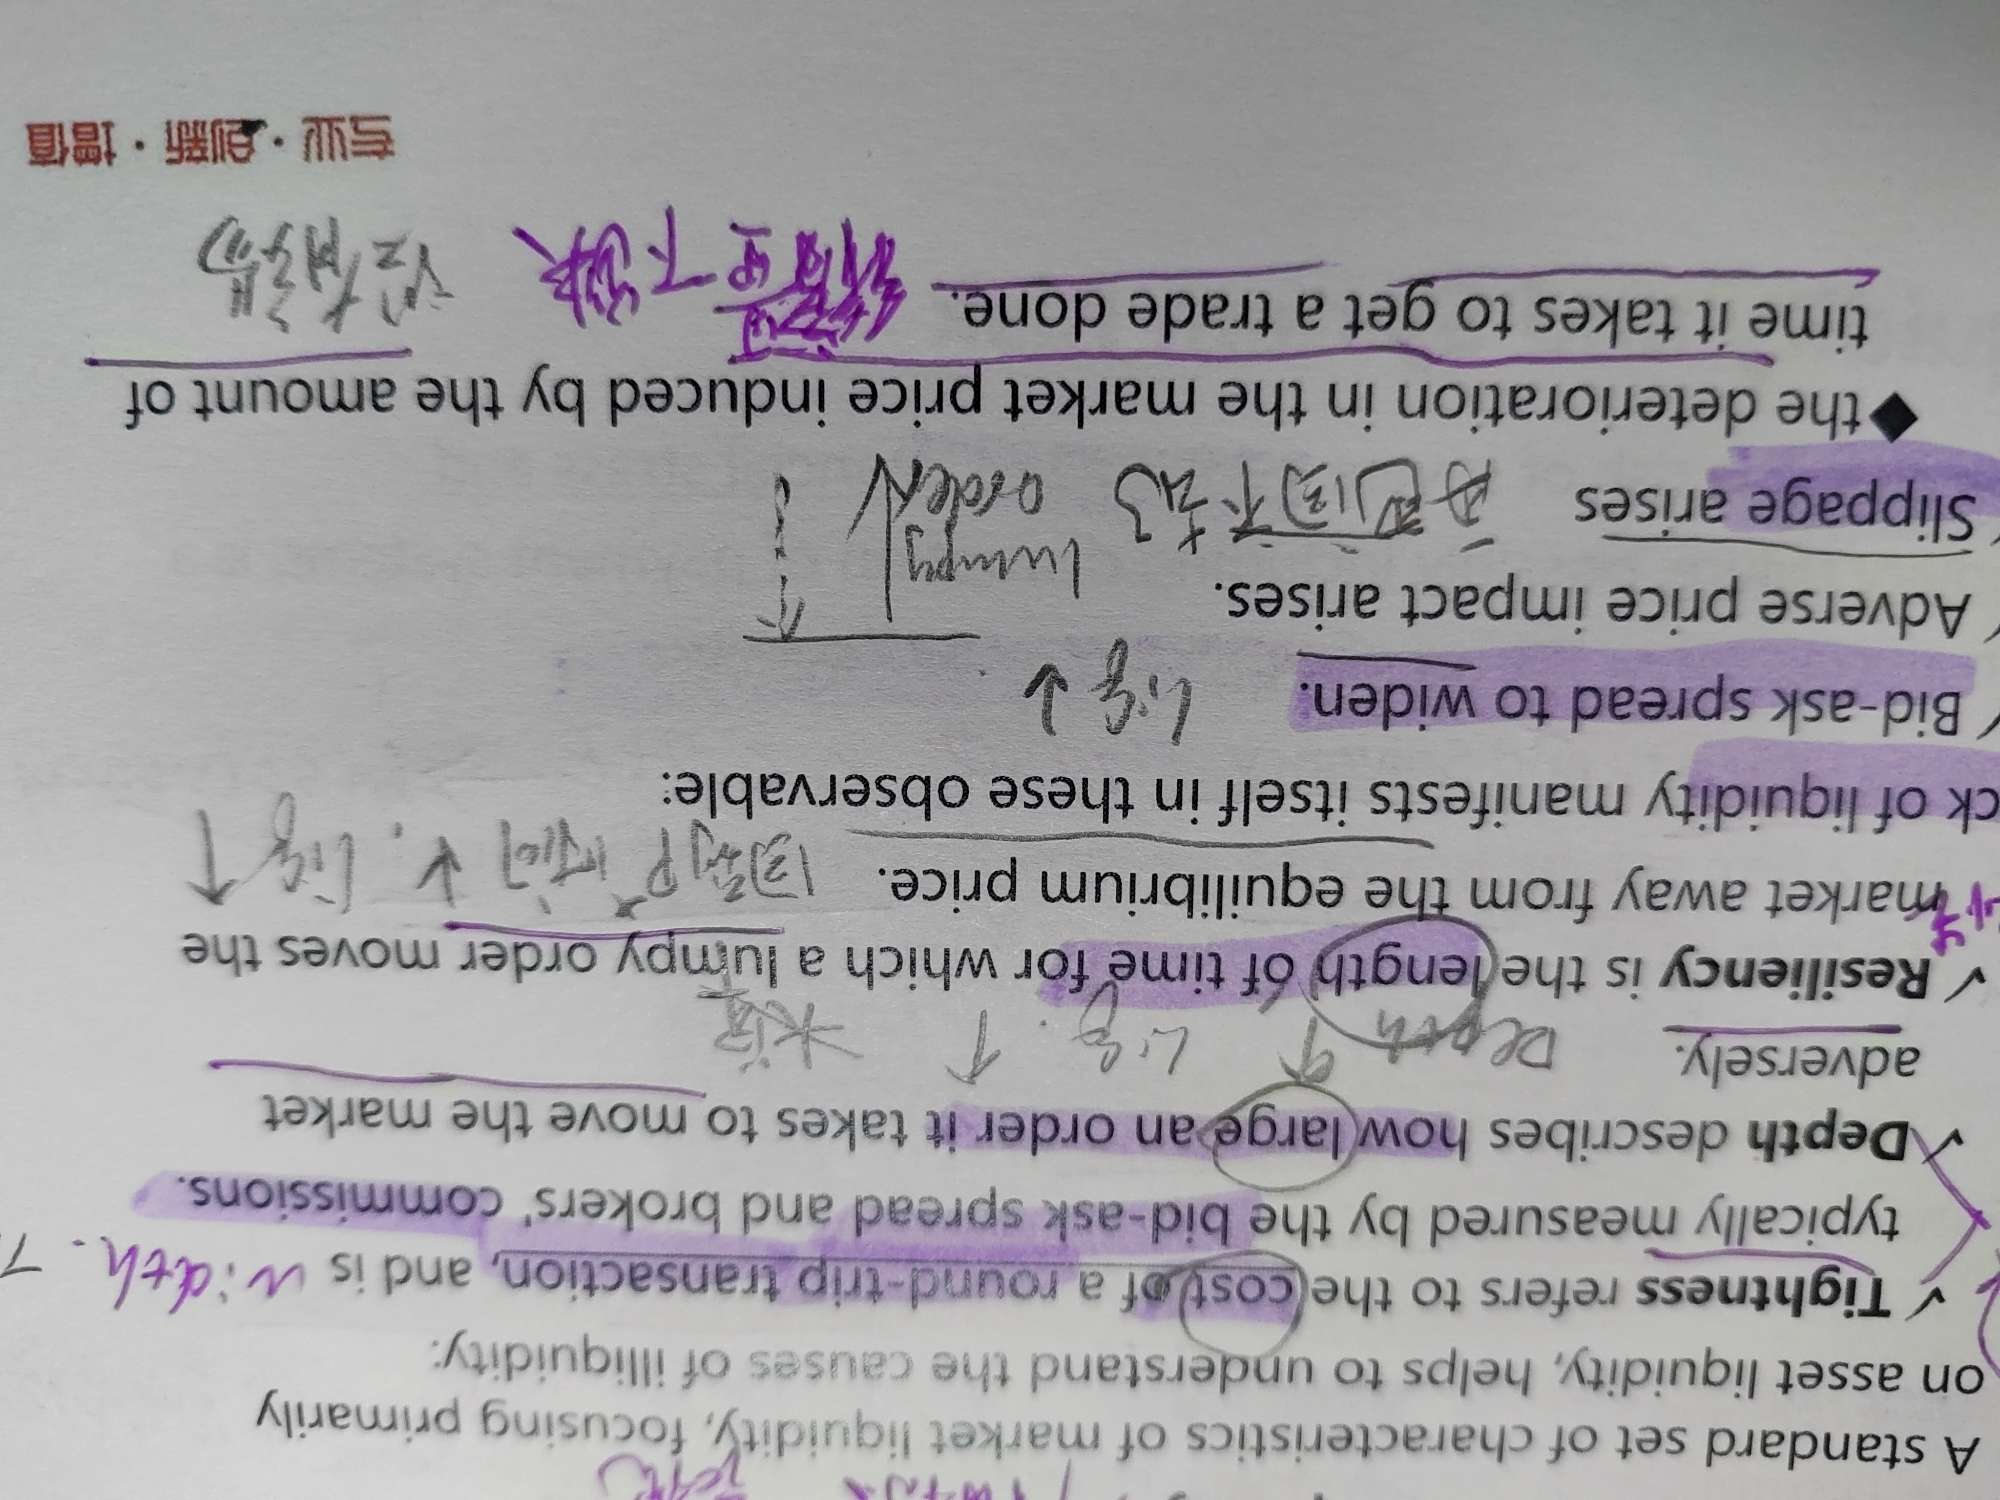 A standard set of characteristics of market liquidity, focusing primarily
on asset liquidity, helps to understand the causes of illiquidity:
✓ Tightness refers to the cost of a round-trip transaction, and is width.
typically measured by the bid-ask spread and brokers' commissions.
✓ Depth describes how large an order it takes to move the market
adversely. Depth ↑ Liq. ↑ 水深
✓ Resiliency is the length of time for which a lumpy order moves the
market away from the equilibrium price. 回到P 时间 ↑. Liq ↓
ck of liquidity manifests itself in these observable:
Bid-ask spread to widen. Liq ↓
Adverse price impact arises. lumpy
Slippage arises 回不去 order
◆ the deterioration in the market price induced by the amount of
time it takes to get a trade done.
专业·创新·增值